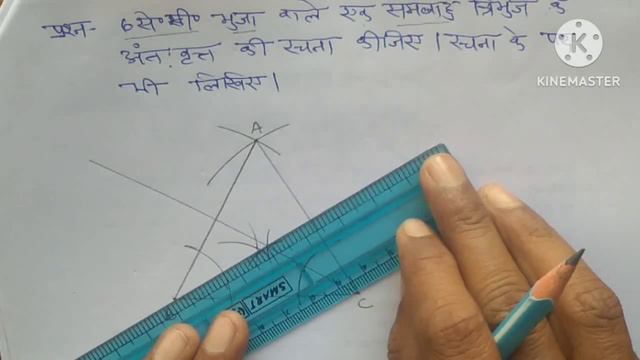 प्रश्न- 6 से॰मी॰ भुजा वाले एक समबाहु त्रिभुज के
अंतः वृत्त की रचना कीजिए। रचना के पद
भी लिखिए।
KINEMASTER
A
SMART
B
C